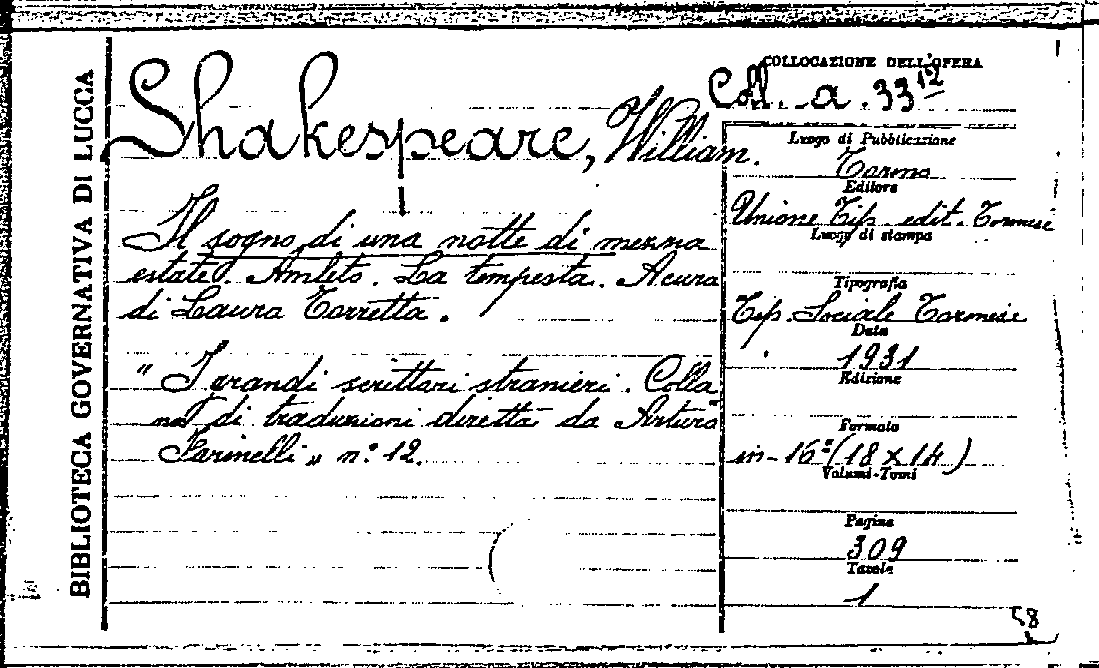 BIBLIOTECA GOVERNATIVA DI LUCCA
COLLOCAZIONE DELL'OPERA
Coll. a. 33 12
Shakespeare, William.
Il sogno di una notte di mezza
estate. Amleto. La tempesta. A cura
di Laura Torretta.
"I grandi scrittori stranieri. Colla
na di traduzioni diretta da Arturo
Farinelli" n.° 12.
Luogo di Pubblicazione
Torino
Editore
Unione Tip. edit. Torinese
Luogo di stampa
Tipografia
Tip. Sociale Torinese
Data
1931
Edizione
Formato
in-16° (18 x 14)
Volumi-Tomi
Pagine
309
Tavole
1
58